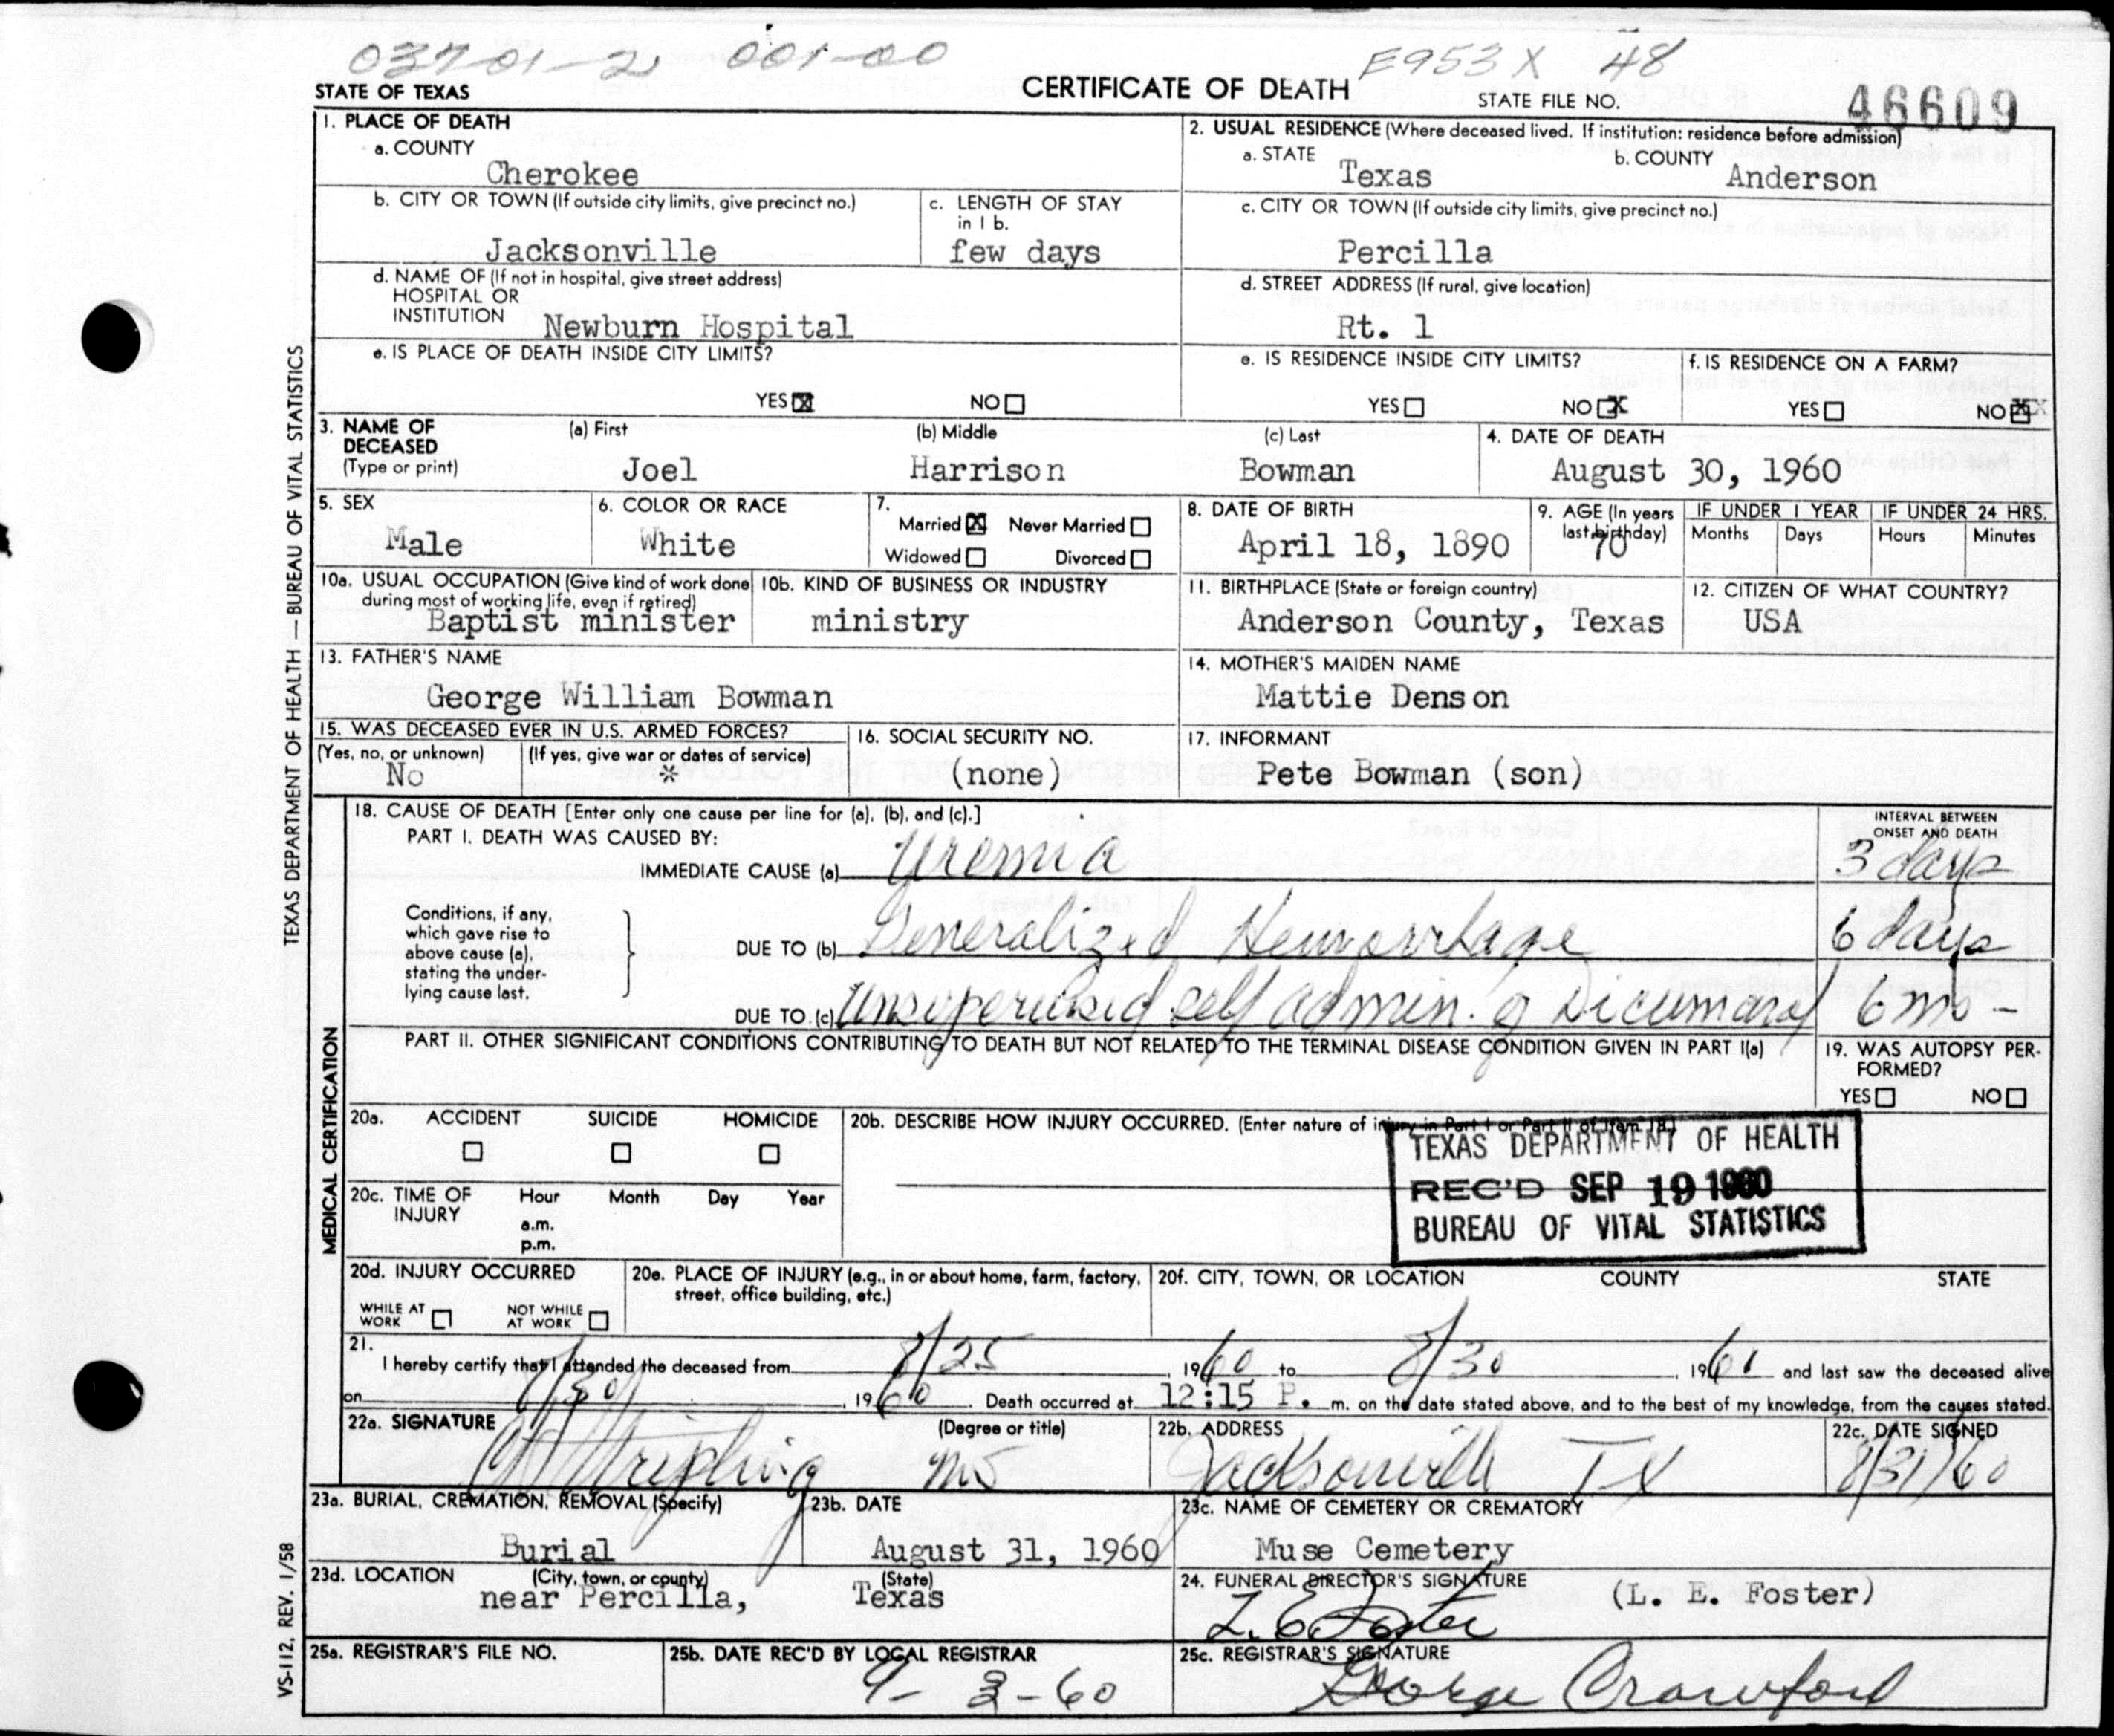 037-01-2 001-00 E953X 48
STATE OF TEXAS CERTIFICATE OF DEATH STATE FILE NO. 46609
1. PLACE OF DEATH
a. COUNTY
Cherokee
b. CITY OR TOWN (If outside city limits, give precinct no.)
Jacksonville
c. LENGTH OF STAY in 1 b.
few days
d. NAME OF (If not in hospital, give street address)
HOSPITAL OR
INSTITUTION Newburn Hospital
e. IS PLACE OF DEATH INSIDE CITY LIMITS?
YES X NO
2. USUAL RESIDENCE (Where deceased lived. If institution: residence before admission)
a. STATE Texas b. COUNTY Anderson
c. CITY OR TOWN (If outside city limits, give precinct no.)
Percilla
d. STREET ADDRESS (If rural, give location)
Rt. 1
e. IS RESIDENCE INSIDE CITY LIMITS?
YES NO X
f. IS RESIDENCE ON A FARM?
YES NO XX
3. NAME OF DECEASED (Type or print)
(a) First (b) Middle (c) Last
Joel Harrison Bowman
4. DATE OF DEATH
August 30, 1960
5. SEX
Male
6. COLOR OR RACE
White
7.
Married X Never Married
Widowed Divorced
8. DATE OF BIRTH
April 18, 1890
9. AGE (In years last birthday)
70
IF UNDER 1 YEAR IF UNDER 24 HRS.
Months Days Hours Minutes
10a. USUAL OCCUPATION (Give kind of work done during most of working life, even if retired)
Baptist minister
10b. KIND OF BUSINESS OR INDUSTRY
ministry
11. BIRTHPLACE (State or foreign country)
Anderson County, Texas
12. CITIZEN OF WHAT COUNTRY?
USA
13. FATHER'S NAME
George William Bowman
14. MOTHER'S MAIDEN NAME
Mattie Denson
15. WAS DECEASED EVER IN U.S. ARMED FORCES?
(Yes, no, or unknown) (If yes, give war or dates of service)
No *
16. SOCIAL SECURITY NO.
(none)
17. INFORMANT
Pete Bowman (son)
18. CAUSE OF DEATH [Enter only one cause per line for (a), (b), and (c).]
PART I. DEATH WAS CAUSED BY:
INTERVAL BETWEEN ONSET AND DEATH
IMMEDIATE CAUSE (a) Uremia 3 days
Conditions, if any, which gave rise to above cause (a), stating the underlying cause last.
DUE TO (b) Generalized Hemorrhage 6 days
DUE TO (c) Unsupervised self admin. of Dicumarol 6 mo -
PART II. OTHER SIGNIFICANT CONDITIONS CONTRIBUTING TO DEATH BUT NOT RELATED TO THE TERMINAL DISEASE CONDITION GIVEN IN PART I(a)
19. WAS AUTOPSY PERFORMED?
YES NO
20a. ACCIDENT SUICIDE HOMICIDE
20b. DESCRIBE HOW INJURY OCCURRED. (Enter nature of injury in Part I or Part II of item 18.)
TEXAS DEPARTMENT OF HEALTH
REC'D SEP 19 1960
BUREAU OF VITAL STATISTICS
20c. TIME OF INJURY Hour Month Day Year
a.m.
p.m.
20d. INJURY OCCURRED
WHILE AT WORK NOT WHILE AT WORK
20e. PLACE OF INJURY (e.g., in or about home, farm, factory, street, office building, etc.)
20f. CITY, TOWN, OR LOCATION COUNTY STATE
21.
I hereby certify that I attended the deceased from 8/25, 1960 to 8/30, 1960 and last saw the deceased alive
on 8/30, 1960. Death occurred at 12:15 P. m. on the date stated above, and to the best of my knowledge, from the causes stated.
22a. SIGNATURE (Degree or title)
Stripling MD
22b. ADDRESS
Jacksonville TX
22c. DATE SIGNED
8/31/60
23a. BURIAL, CREMATION, REMOVAL (Specify)
Burial
23b. DATE
August 31, 1960
23c. NAME OF CEMETERY OR CREMATORY
Muse Cemetery
23d. LOCATION (City, town, or county) (State)
near Percilla, Texas
24. FUNERAL DIRECTOR'S SIGNATURE
L. E. Foster (L. E. Foster)
25a. REGISTRAR'S FILE NO.
25b. DATE REC'D BY LOCAL REGISTRAR
9-3-60
25c. REGISTRAR'S SIGNATURE
George Crawford
TEXAS DEPARTMENT OF HEALTH — BUREAU OF VITAL STATISTICS
MEDICAL CERTIFICATION
VS-112, REV. 1/58